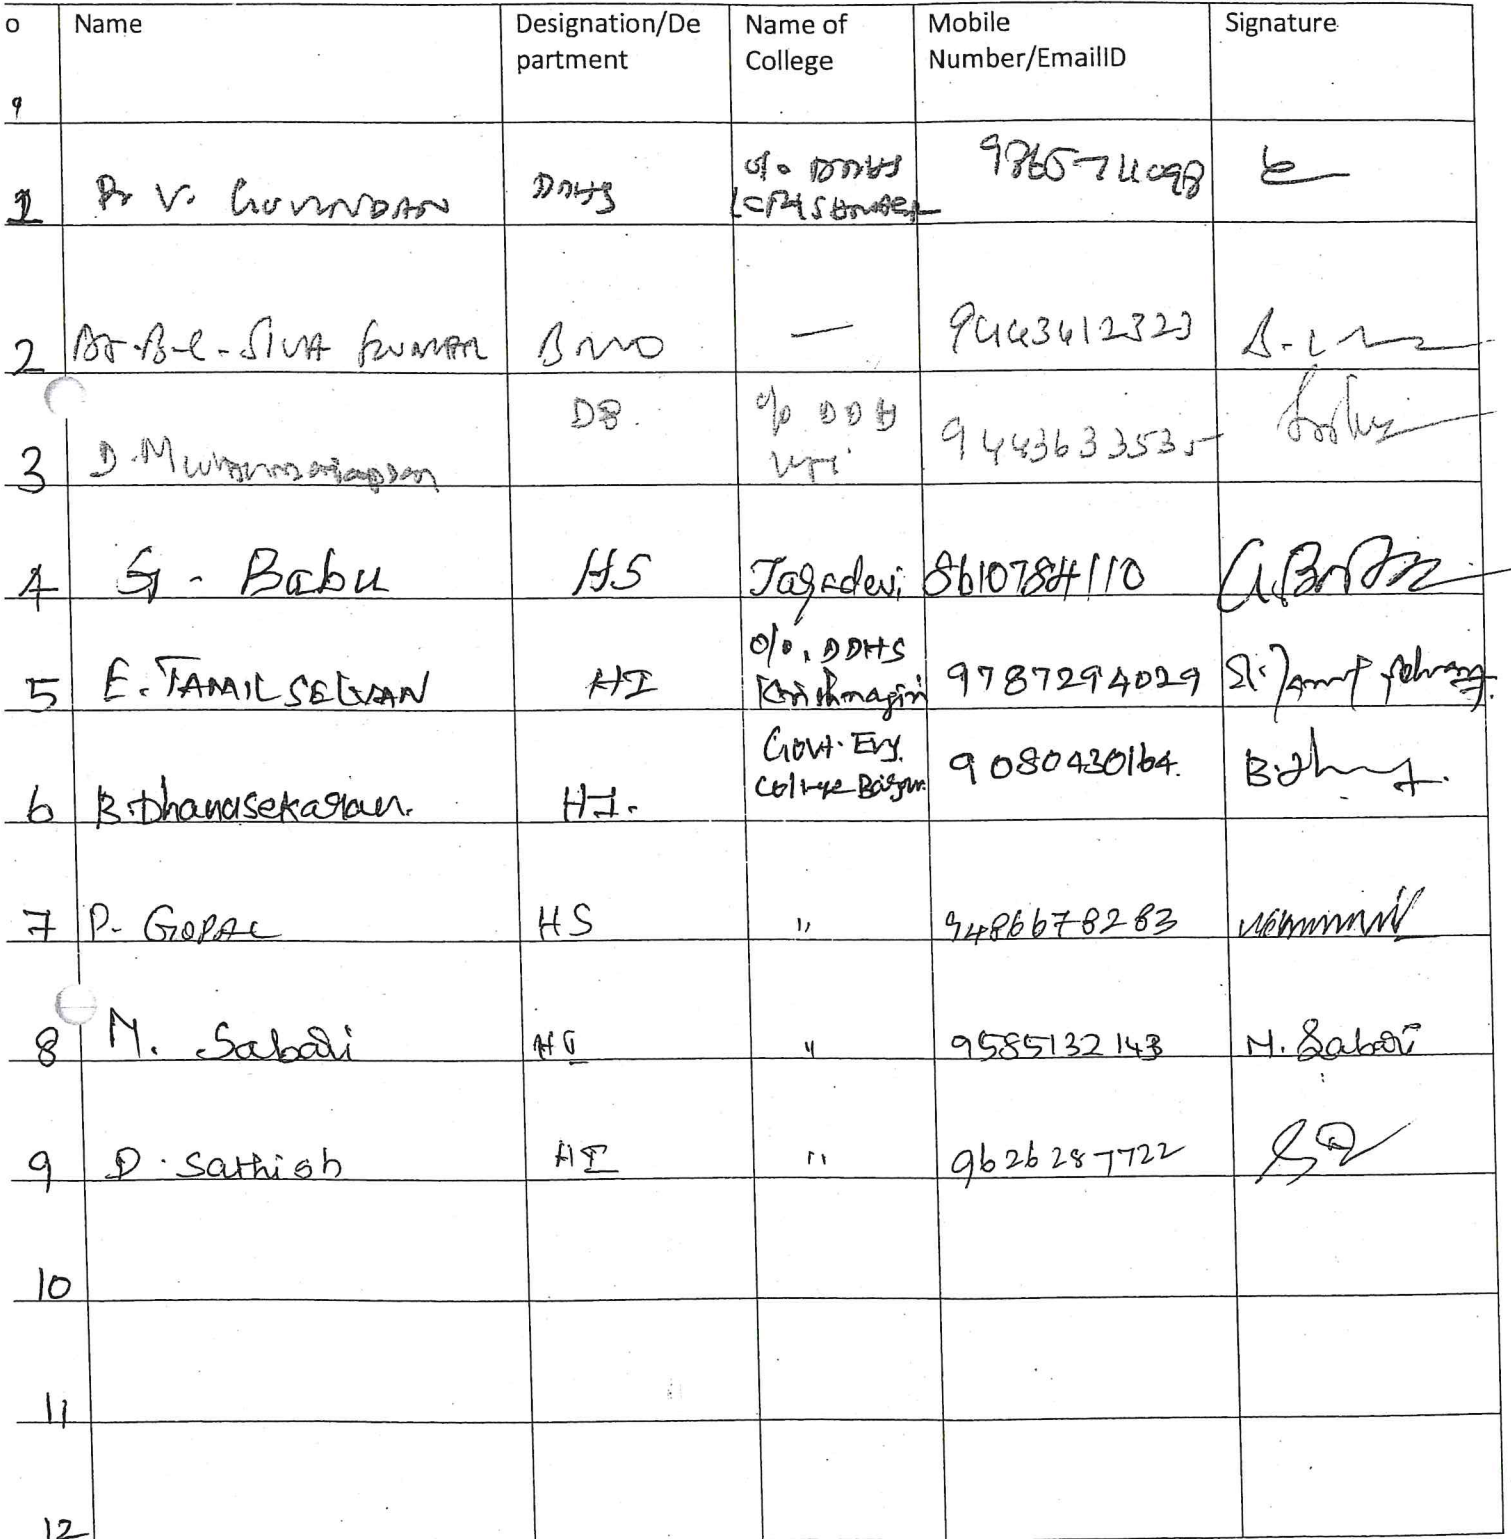 o Name Designation/De Name of Mobile Signature
partment College Number/EmailID
1 Dr V. GOVINDAN DDHS o/o DDHS 9865711098
2 Dr. B.C. SIVA KUMAR BMO — 9443612323
3 D. DB. o/o DDH 9443633535
4 G. Babu HS Jagadevi 8610784110
5 E. TAMILSELVAN HI o/o. DDHS Krishnagiri 9787294029
6 B. Dhanasekaran. HI. Govt. Eng. College Bargur. 9080430164.
7 P. GOPAL HS " 9486678283
8 M. Sabari HI " 9585132143 M. Sabari
9 D. Sathish HI " 9626287722
10
11
12